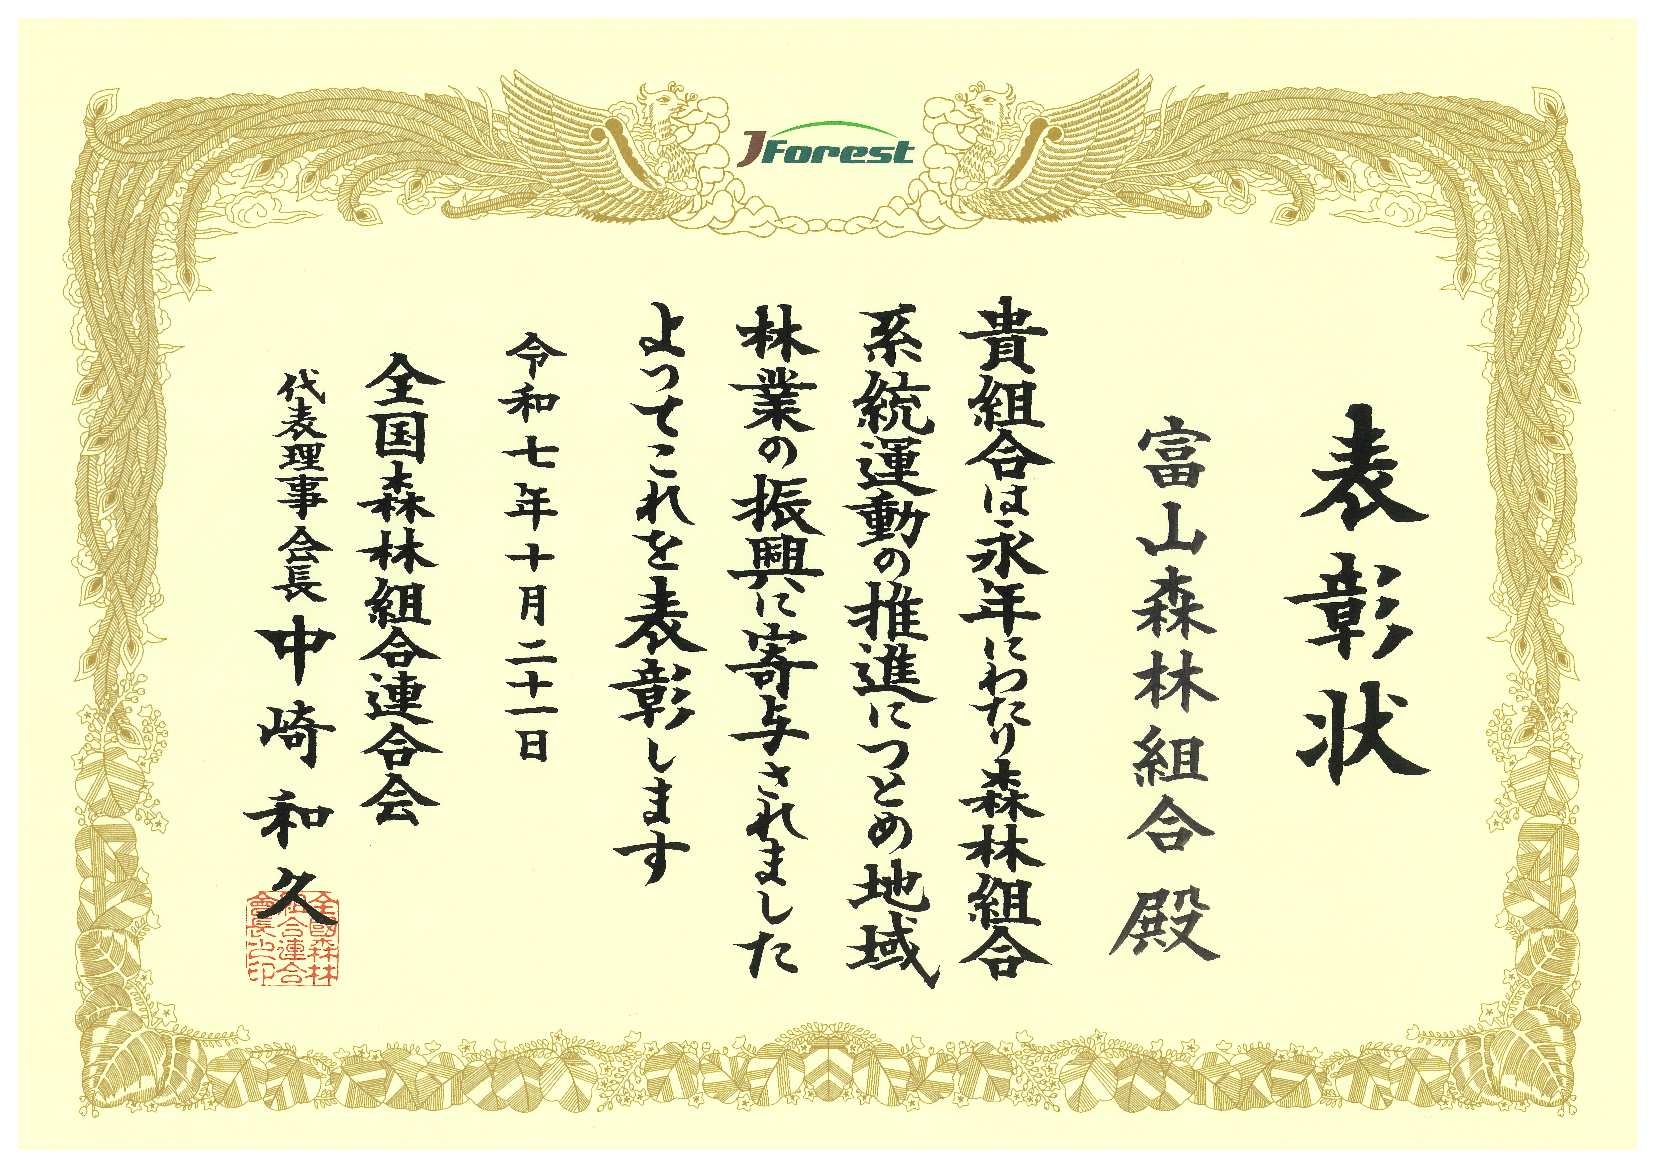 JForest
表彰状
富山森林組合 殿
貴組合は永年にわたり森林組合
系統運動の推進につとめ地域
林業の振興に寄与されました
よってこれを表彰します
令和七年十月二十一日
全国森林組合連合会
代表理事会長 中崎和久
全國森林
組合連合
會長之印